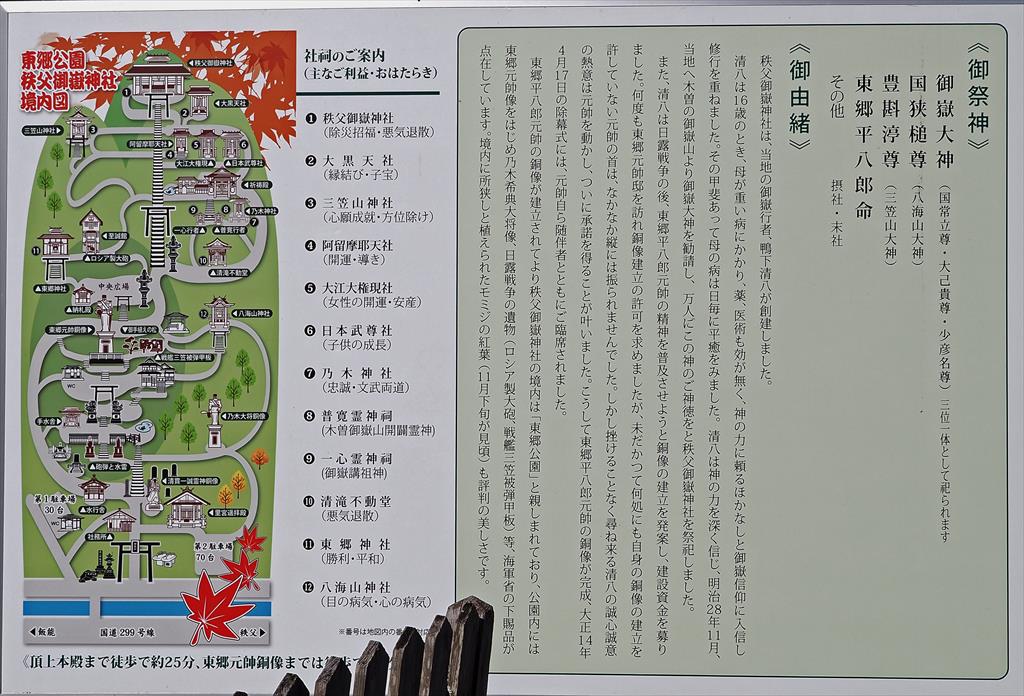 東郷公園
秩父御嶽神社
境内図
◀秩父御嶽神社
◀大黒天社
三笠山神社▶
阿留摩耶天社▶
大江大権現▲
▲日本武尊社
◀祈祷殿
◀乃木神社
一心行者▲
▲普寛行者
◀至誠館
▲ロシア製大砲
▲清滝不動堂
▲東郷神社
中央広場
▲納札殿
◀八海山神社
東郷元帥銅像▶
▼御手植えの松
▲戦艦三笠被弾甲板
WC
手水舎▶
◀乃木大将銅像
▲砲弾と水雷
◀清貫一誠霊神銅像
第1駐車場
30台
▲水行舎
◀里宮遥拝殿
WC
社務所▲
第2駐車場
70台
◀飯能
国道299号線
秩父▶
《頂上本殿まで徒歩で約25分、東郷元帥銅像までは
社祠のご案内
(主なご利益・おはたらき)
❶ 秩父御嶽神社
(除災招福・悪気退散)
❷ 大黒天社
(縁結び・子宝)
❸ 三笠山神社
(心願成就・方位除け)
❹ 阿留摩耶天社
(開運・導き)
❺ 大江大権現社
(女性の開運・安産)
❻ 日本武尊社
(子供の成長)
❼ 乃木神社
(忠誠・文武両道)
❽ 普寛霊神祠
(木曽御嶽山開闢霊神)
❾ 一心霊神祠
(御嶽講祖神)
❿ 清滝不動堂
(悪気退散)
⓫ 東郷神社
(勝利・平和)
⓬ 八海山神社
(目の病気・心の病気)
※番号は地図内の番
《御祭神》
御嶽大神(国常立尊・大己貴尊・少彦名尊)三位一体として祀られます
国狭槌尊(八海山大神)
豊斟渟尊(三笠山大神)
東郷平八郎命
その他 摂社・末社
《御由緒》
秩父御嶽神社は、当地の御嶽行者 鴨下清八が創建しました。
清八は16歳のとき、母が重い病にかかり、薬、医術も効が無く、神の力に頼るほかなしと御嶽信仰に入信し
修行を重ねました。その甲斐あって母の病は日毎に平癒をみました。清八は神の力を深く信じ、明治28年11月、
当地へ木曽の御嶽山より御嶽大神を勧請し、万人にこの神のご神徳をと秩父御嶽神社を祭祀しました。
また、清八は日露戦争の後、東郷平八郎元帥の精神を普及させようと銅像の建立を発案し、建設資金を募り
ました。何度も東郷元帥邸を訪れ銅像建立の許可を求めましたが、未だかつて何処にも自身の銅像の建立を
許していない元帥の首は、なかなか縦には振られませんでした。しかし挫けることなく尋ね来る清八の誠心誠意
の熱意は元帥を動かし、ついに承諾を得ることが叶いました。こうして東郷平八郎元帥の銅像が完成、大正14年
4月17日の除幕式には、元帥自ら随伴者とともにご臨席されました。
東郷平八郎元帥の銅像が建立されてより秩父御嶽神社の境内は「東郷公園」と親しまれており、公園内には
東郷元帥像をはじめ乃木希典大将像、日露戦争の遺物(ロシア製大砲、戦艦三笠被弾甲板)等、海軍省の下賜品が
点在しています。境内に所狭しと植えられたモミジの紅葉(11月下旬が見頃)も評判の美しさです。